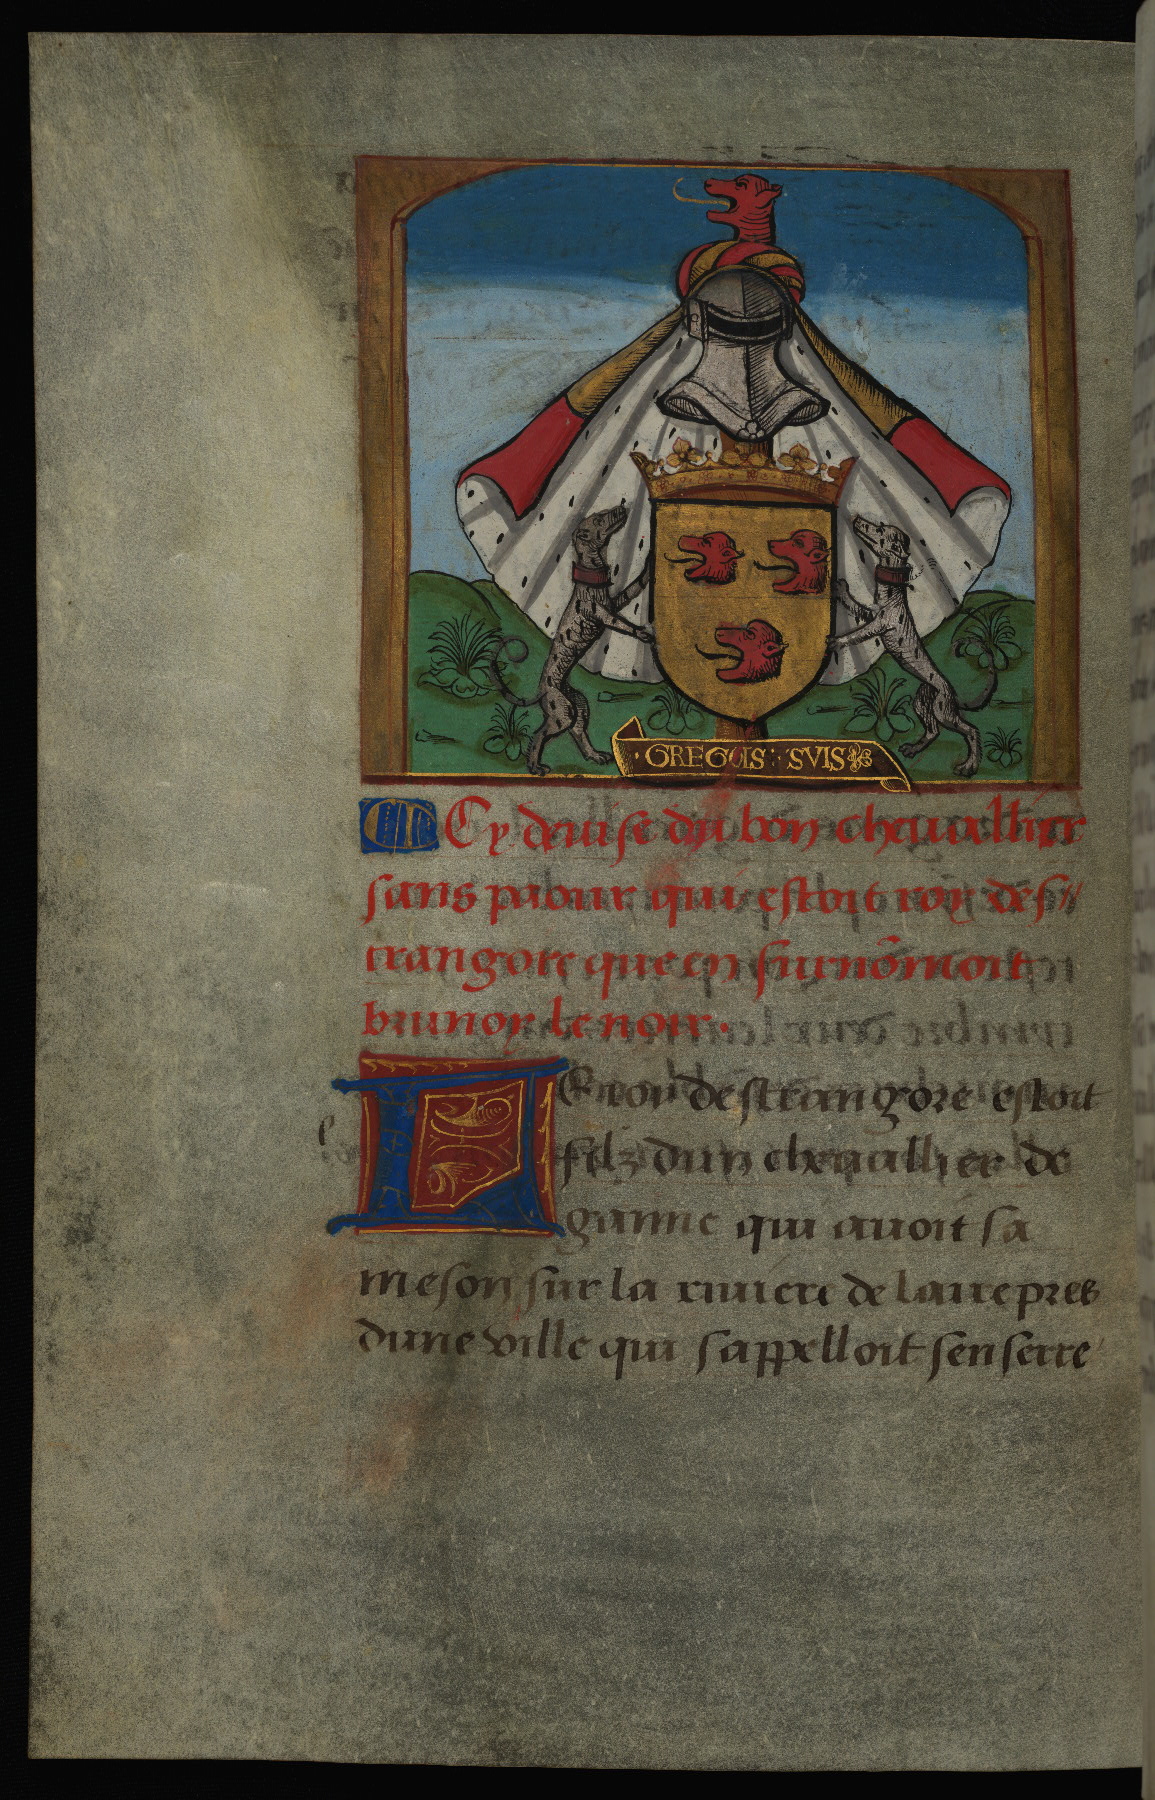 GREGOIS : SVIS
Cy deuise du bon cheuallier
sans paour qui estoit roy des//
trangore que en surnõmoit
brunor le noir.
LE roy destrangore estoit
filz dun cheuallier de
gaunne qui auoit sa
meson sur la riuiere de laire pres
dune ville qui sappelloit senserre